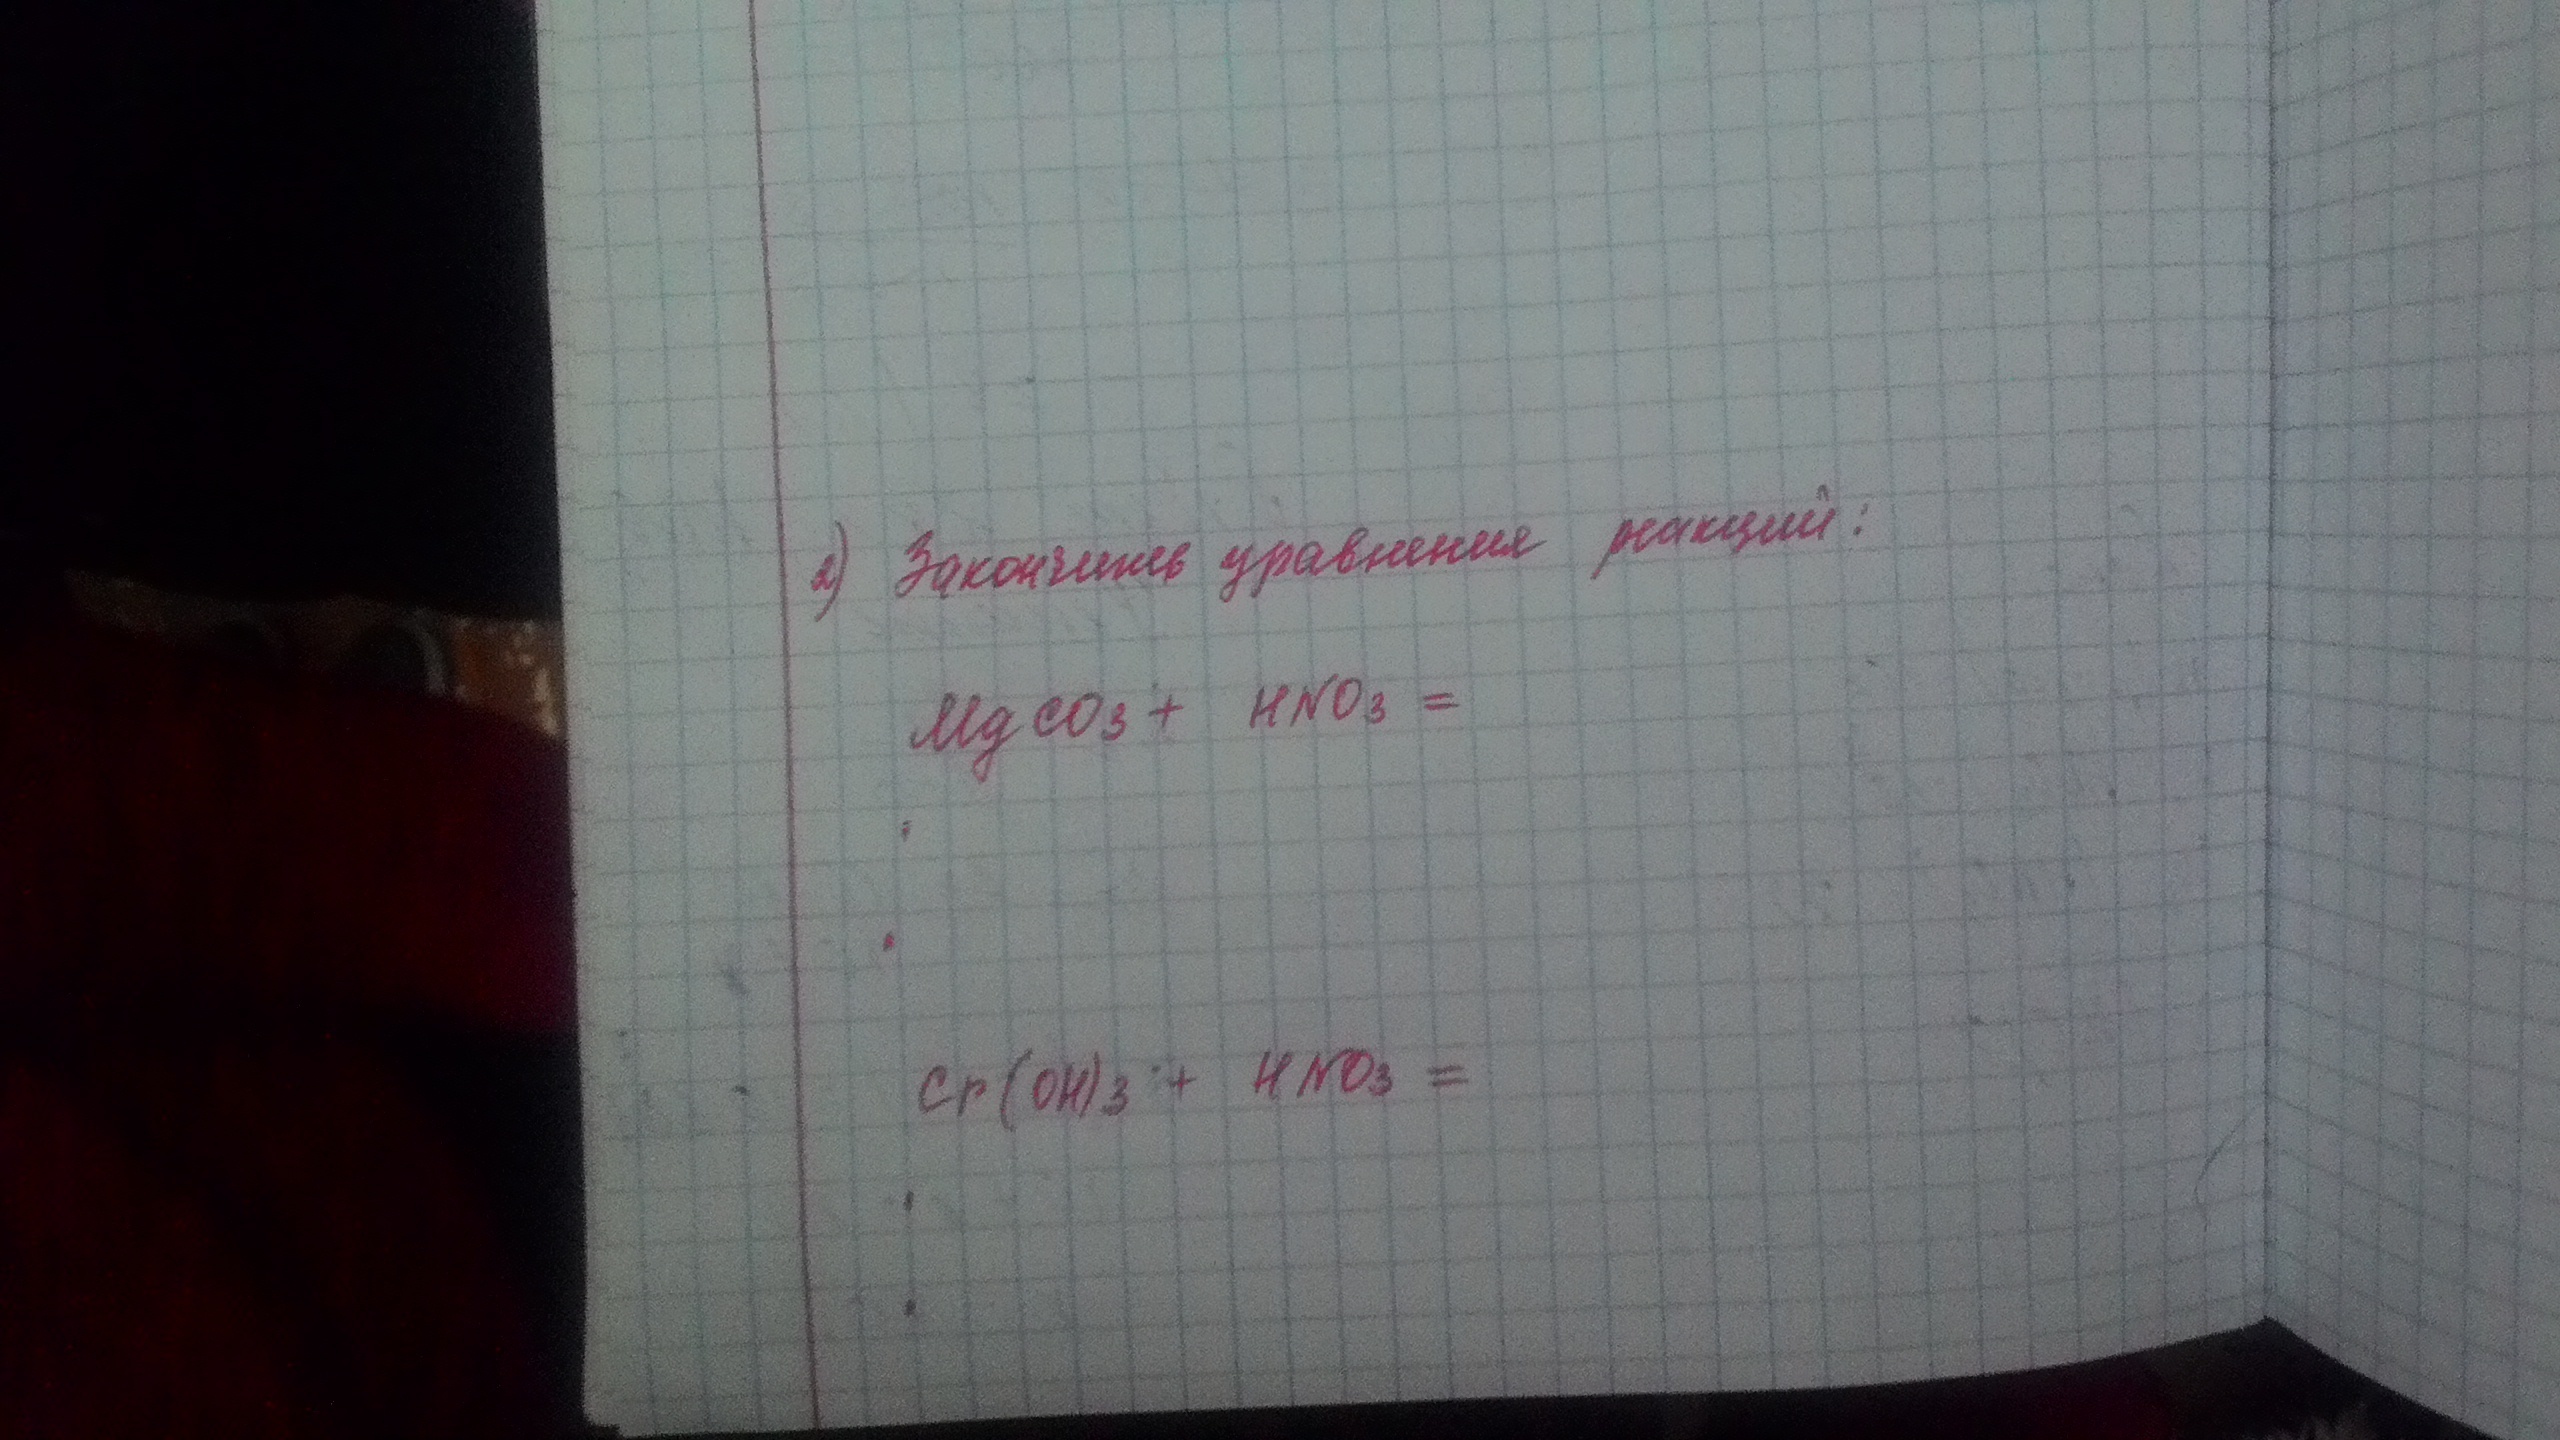 2) Закончить уравнения реакций:
MgCO3 + HNO3 =
Cr(OH)3 + HNO3 =